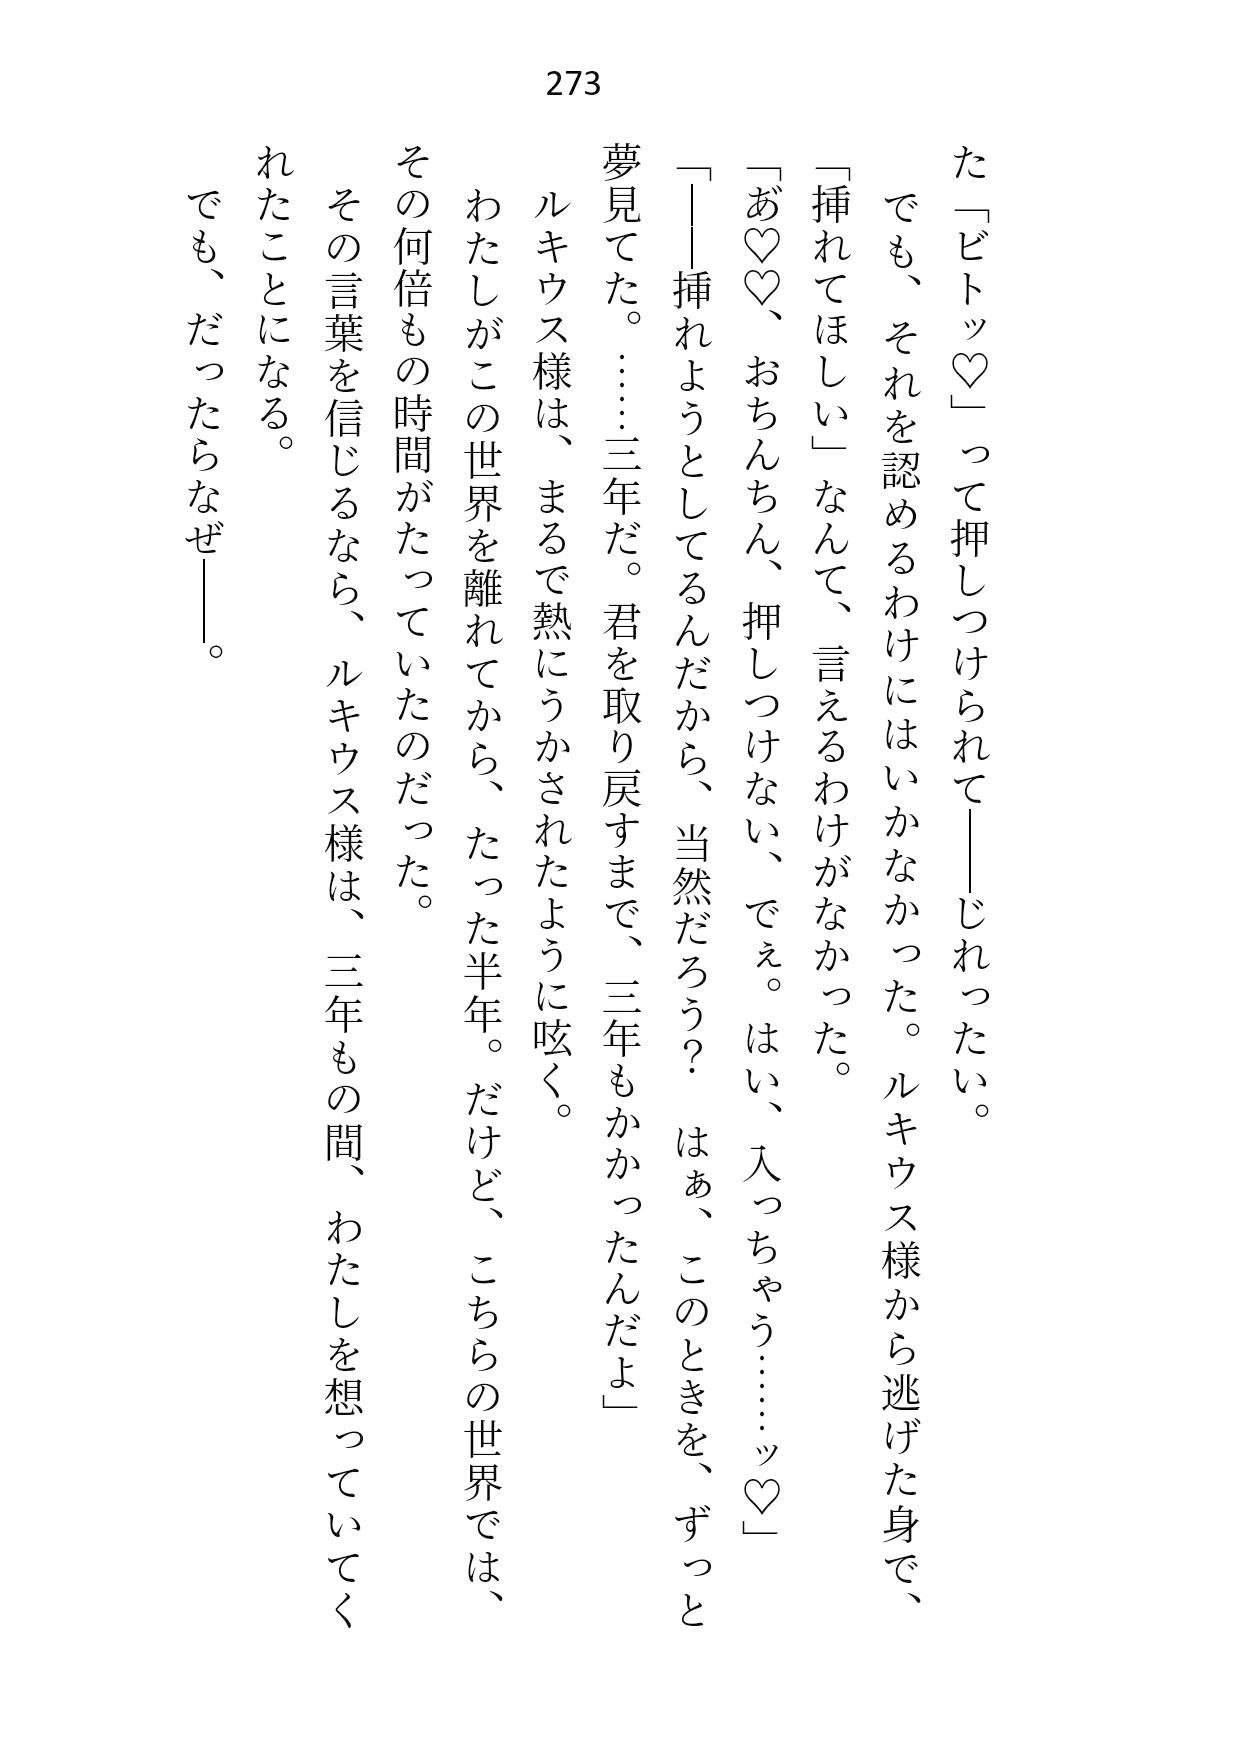 273
た「ビトッ♡」って押しつけられて――じれったい。
でも、それを認めるわけにはいかなかった。ルキウス様から逃げた身で、
「挿れてほしい」なんて、言えるわけがなかった。
「あ゛♡♡、おちんちん、押しつけない、でぇ。はい、入っちゃう……ッ♡」
「――挿れようとしてるんだから、当然だろう？　はぁ、このときを、ずっと
夢見てた。……三年だ。君を取り戻すまで、三年もかかったんだよ」
ルキウス様は、まるで熱にうかされたように呟く。
わたしがこの世界を離れてから、たった半年。だけど、こちらの世界では、
その何倍もの時間がたっていたのだった。
その言葉を信じるなら、ルキウス様は、三年もの間、わたしを想っていてく
れたことになる。
でも、だったらなぜ――。